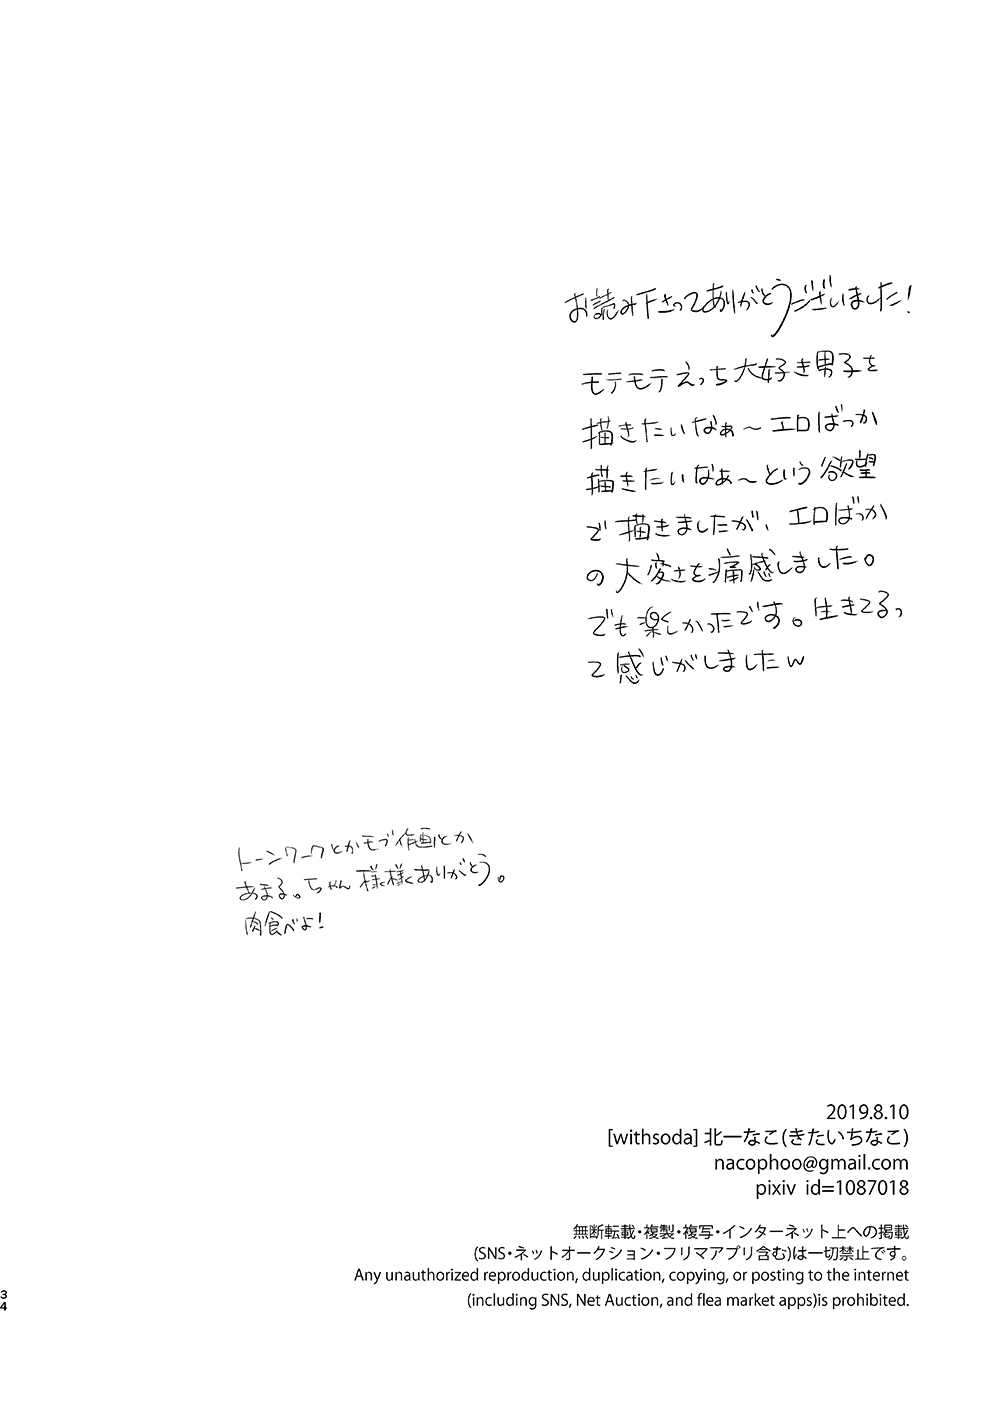 お読み下さってありがとうございました!
モテモテえっち大好き男子を
描きたいなぁ～エロばっか
描きたいなぁ～という欲望
で描きましたが、エロばっか
の大変さを痛感しました。
でも楽しかったです。生きてるっ
て感じがしましたw
トーンワークとかモブ作画とか
あまる。ちゃん様様ありがとう。
肉食べよ!
2019.8.10
[withsoda] 北一なこ(きたいちなこ)
nacophoo@gmail.com
pixiv id=1087018
無断転載・複製・複写・インターネット上への掲載
(SNS・ネットオークション・フリマアプリ含む)は一切禁止です。
Any unauthorized reproduction, duplication, copying, or posting to the internet
(including SNS, Net Auction, and flea market apps)is prohibited.
34